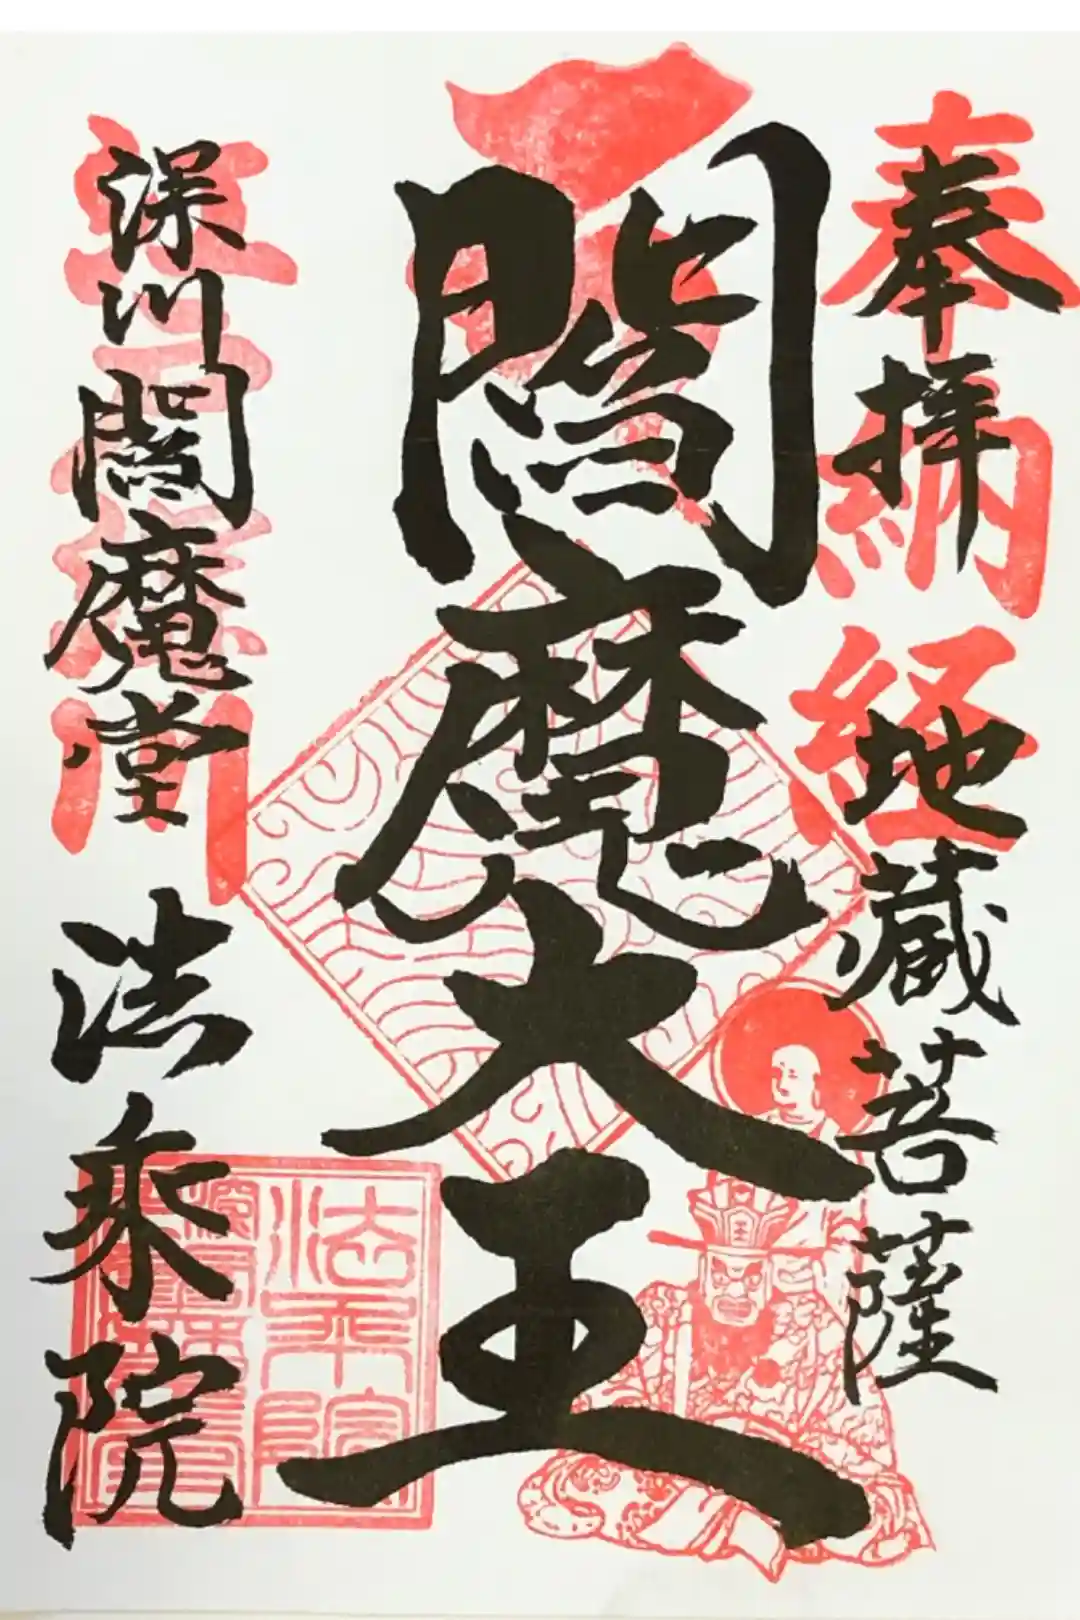 奉拝
地蔵菩薩
奉納経
閻魔大王
深川閻魔堂
法乗院
法乗院